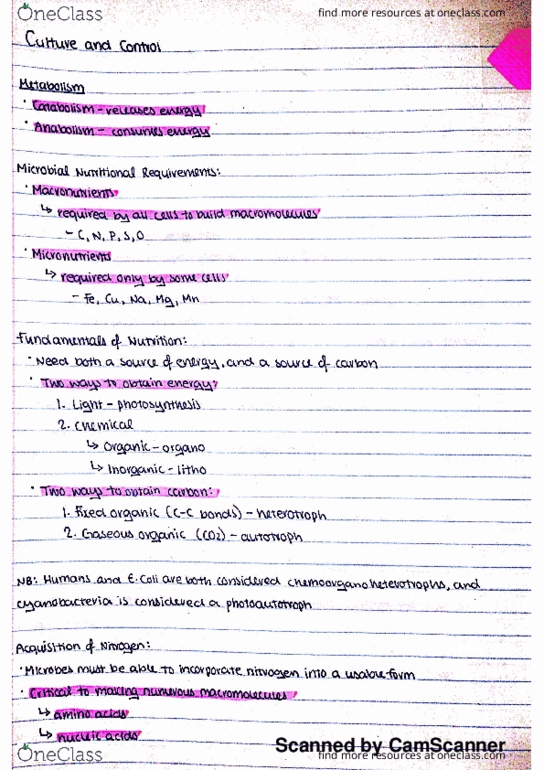 OneClass
find more resources at oneclass.com
Culture and Control
Metabolism
· Catabolism - releases energy
· Anabolism - consumes energy
Microbial Nutritional Requirements:
· Macronutrients
↳ required by all cells to build macromolecules
- C, N, P, S, O
· Micronutrients
↳ required only by some cells
- Fe, Cu, Na, Mg, Mn
Fundamentals of Nutrition:
· Need both a source of energy, and a source of carbon
· Two ways to obtain energy:
1. Light - photosynthesis
2. Chemical
↳ Organic - organo
↳ Inorganic - litho
· Two ways to obtain carbon:
1. Fixed organic (C-C bonds) - heterotroph
2. Gaseous organic (CO2) - autotroph
NB: Humans and E.Coli are both considered chemoorganoheterotrophs, and
cyanobacteria is considered a photoautotroph
Acquisition of Nitrogen:
· Microbes must be able to incorporate nitrogen into a usable form
· Critical to making numerous macromolecules
↳ amino acids
↳ nucleic acids
Scanned by CamScanner
OneClass
find more resources at oneclass.com